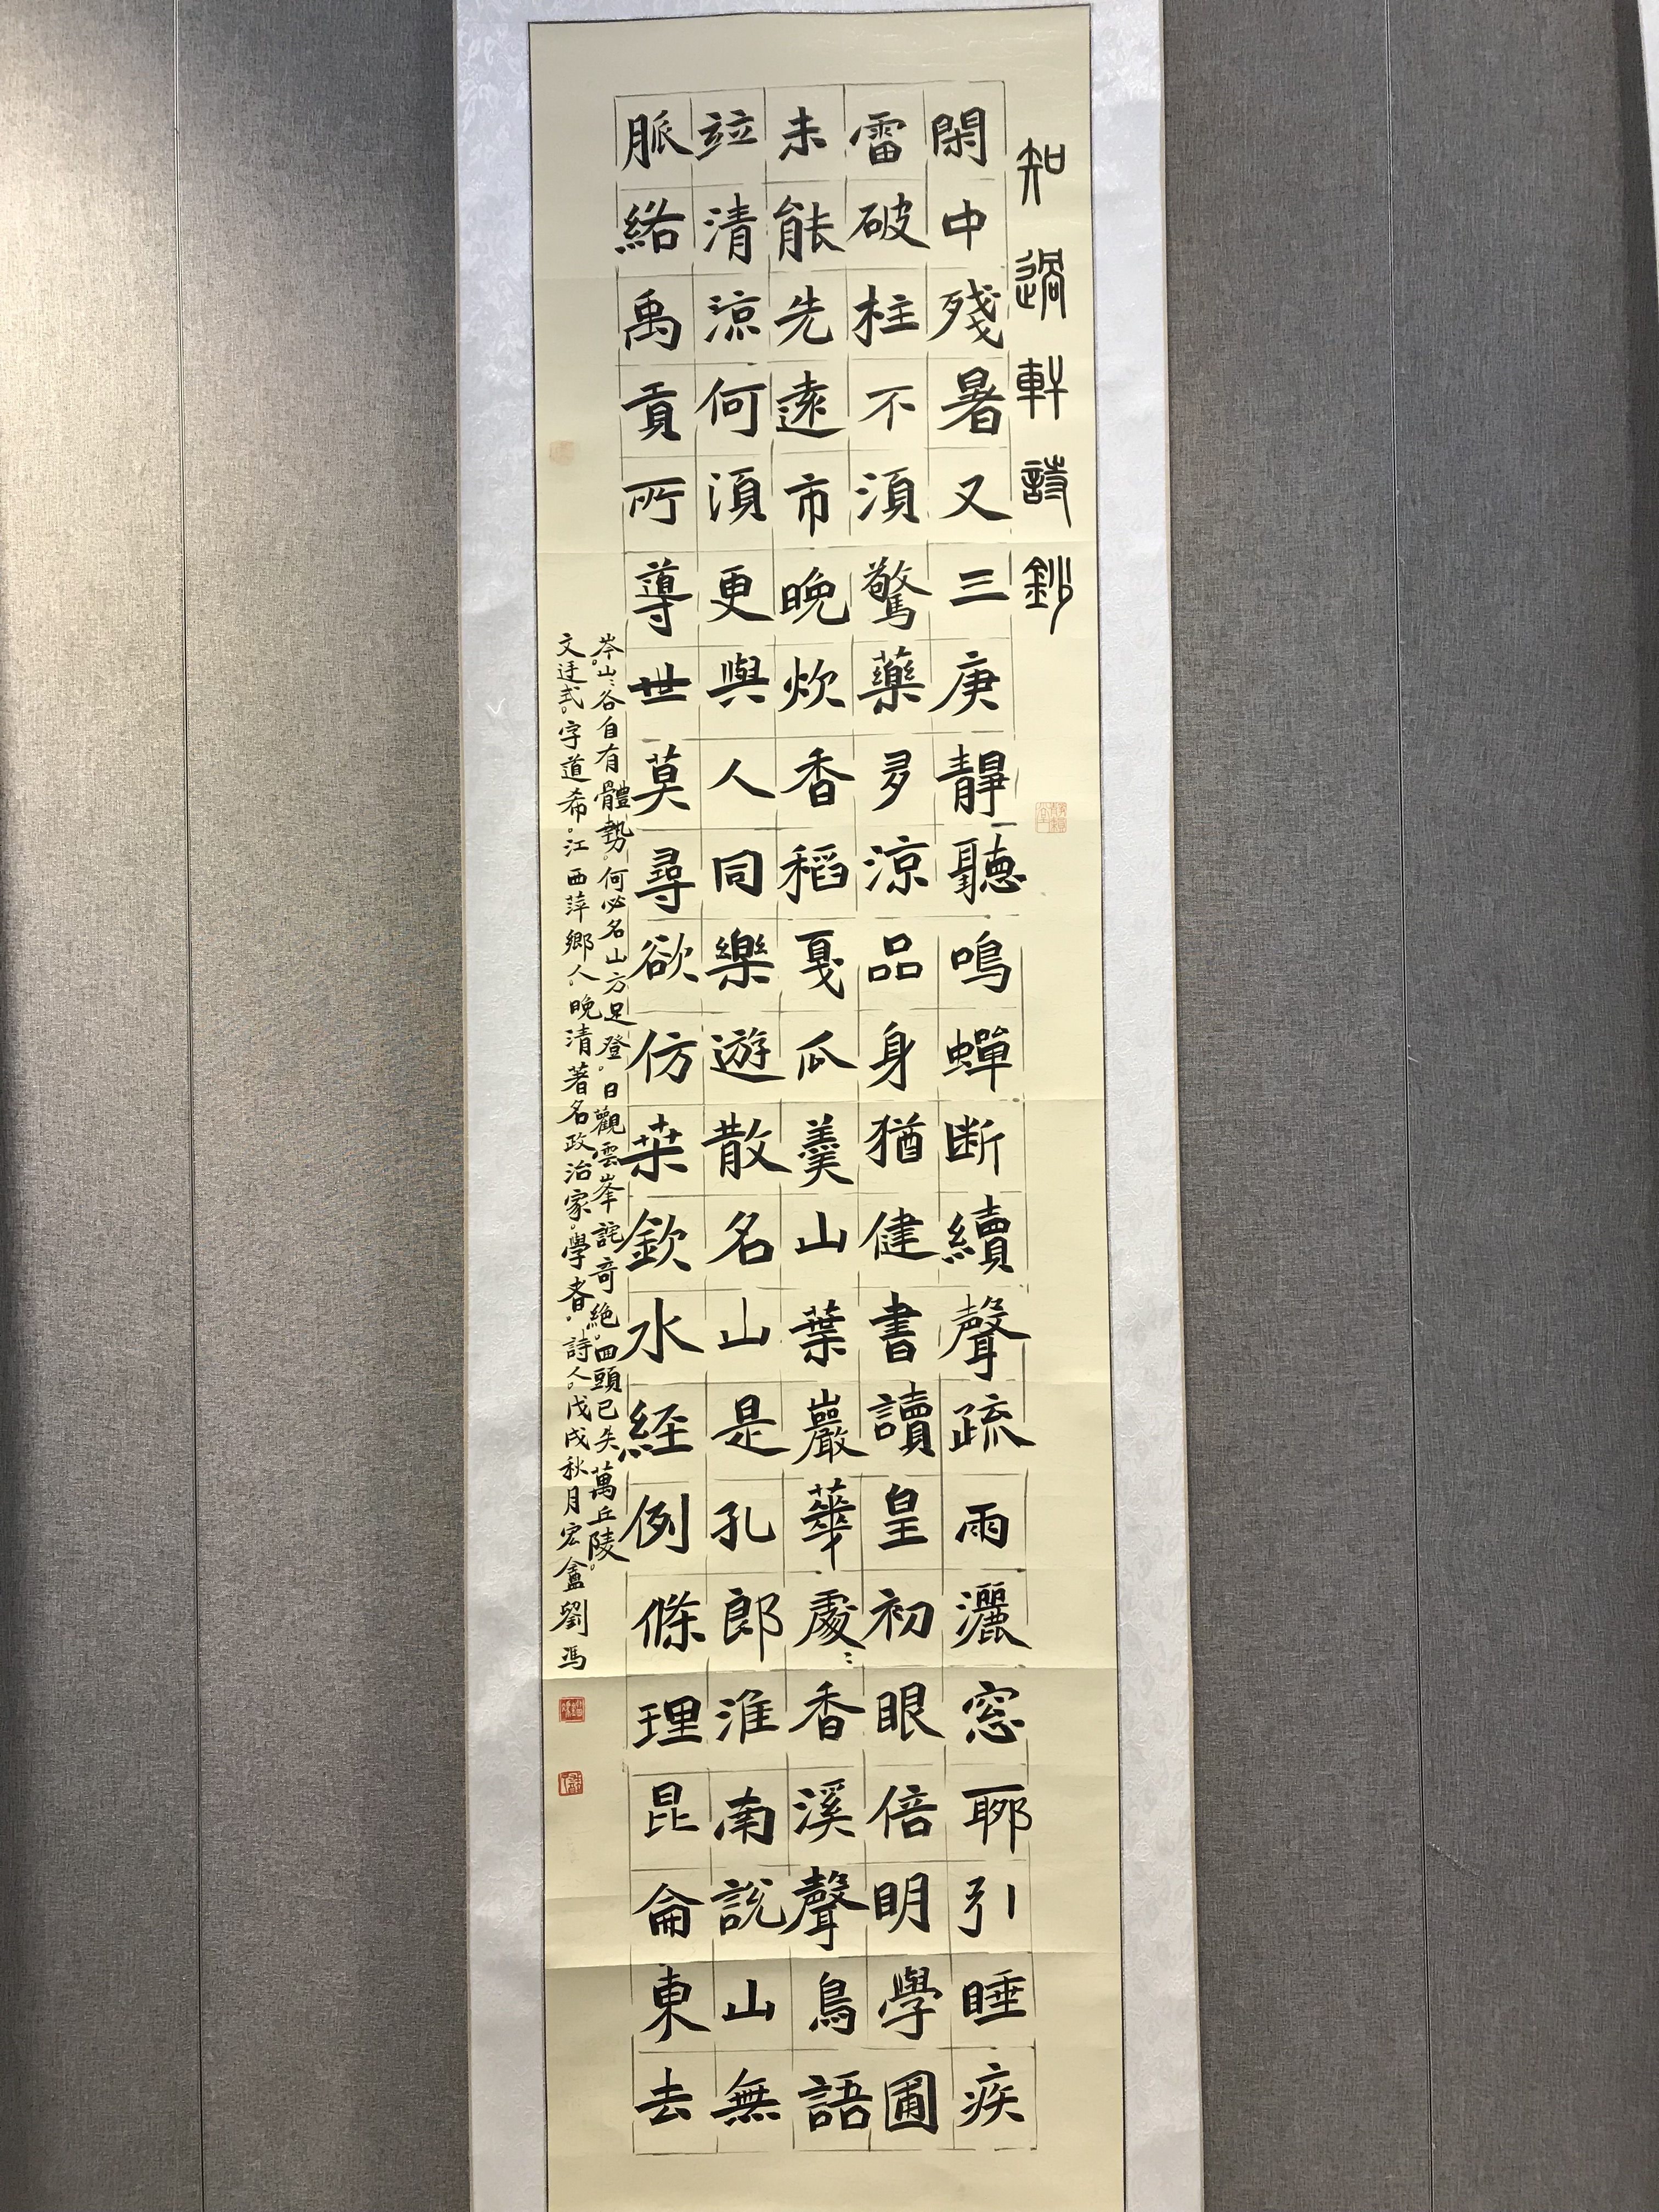 知過軒詩鈔
閑中殘暑又三庚靜聽鳴蟬断續聲疏雨灑窓聊引睡疾
雷破柱不須驚藥多涼品身猶健書讀皇初眼倍明學圃
未能先遠市晚炊香稻戛瓜羹山葉巖華處〻香溪聲鳥語
竝清涼何須更與人同樂遊散名山是孔郎淮南說山無
脈絡禹貢所導世莫尋欲仿桒欽水經例條理昆侖東去
岑。山〻谷自有體勢。何必名山方足登。日觀雲峯詫奇絶。回頭已失萬丘陵。
文廷式。字道希。江西萍鄉人。晚清著名政治家。學者。詩人。戊戌秋月宏盦劉馮